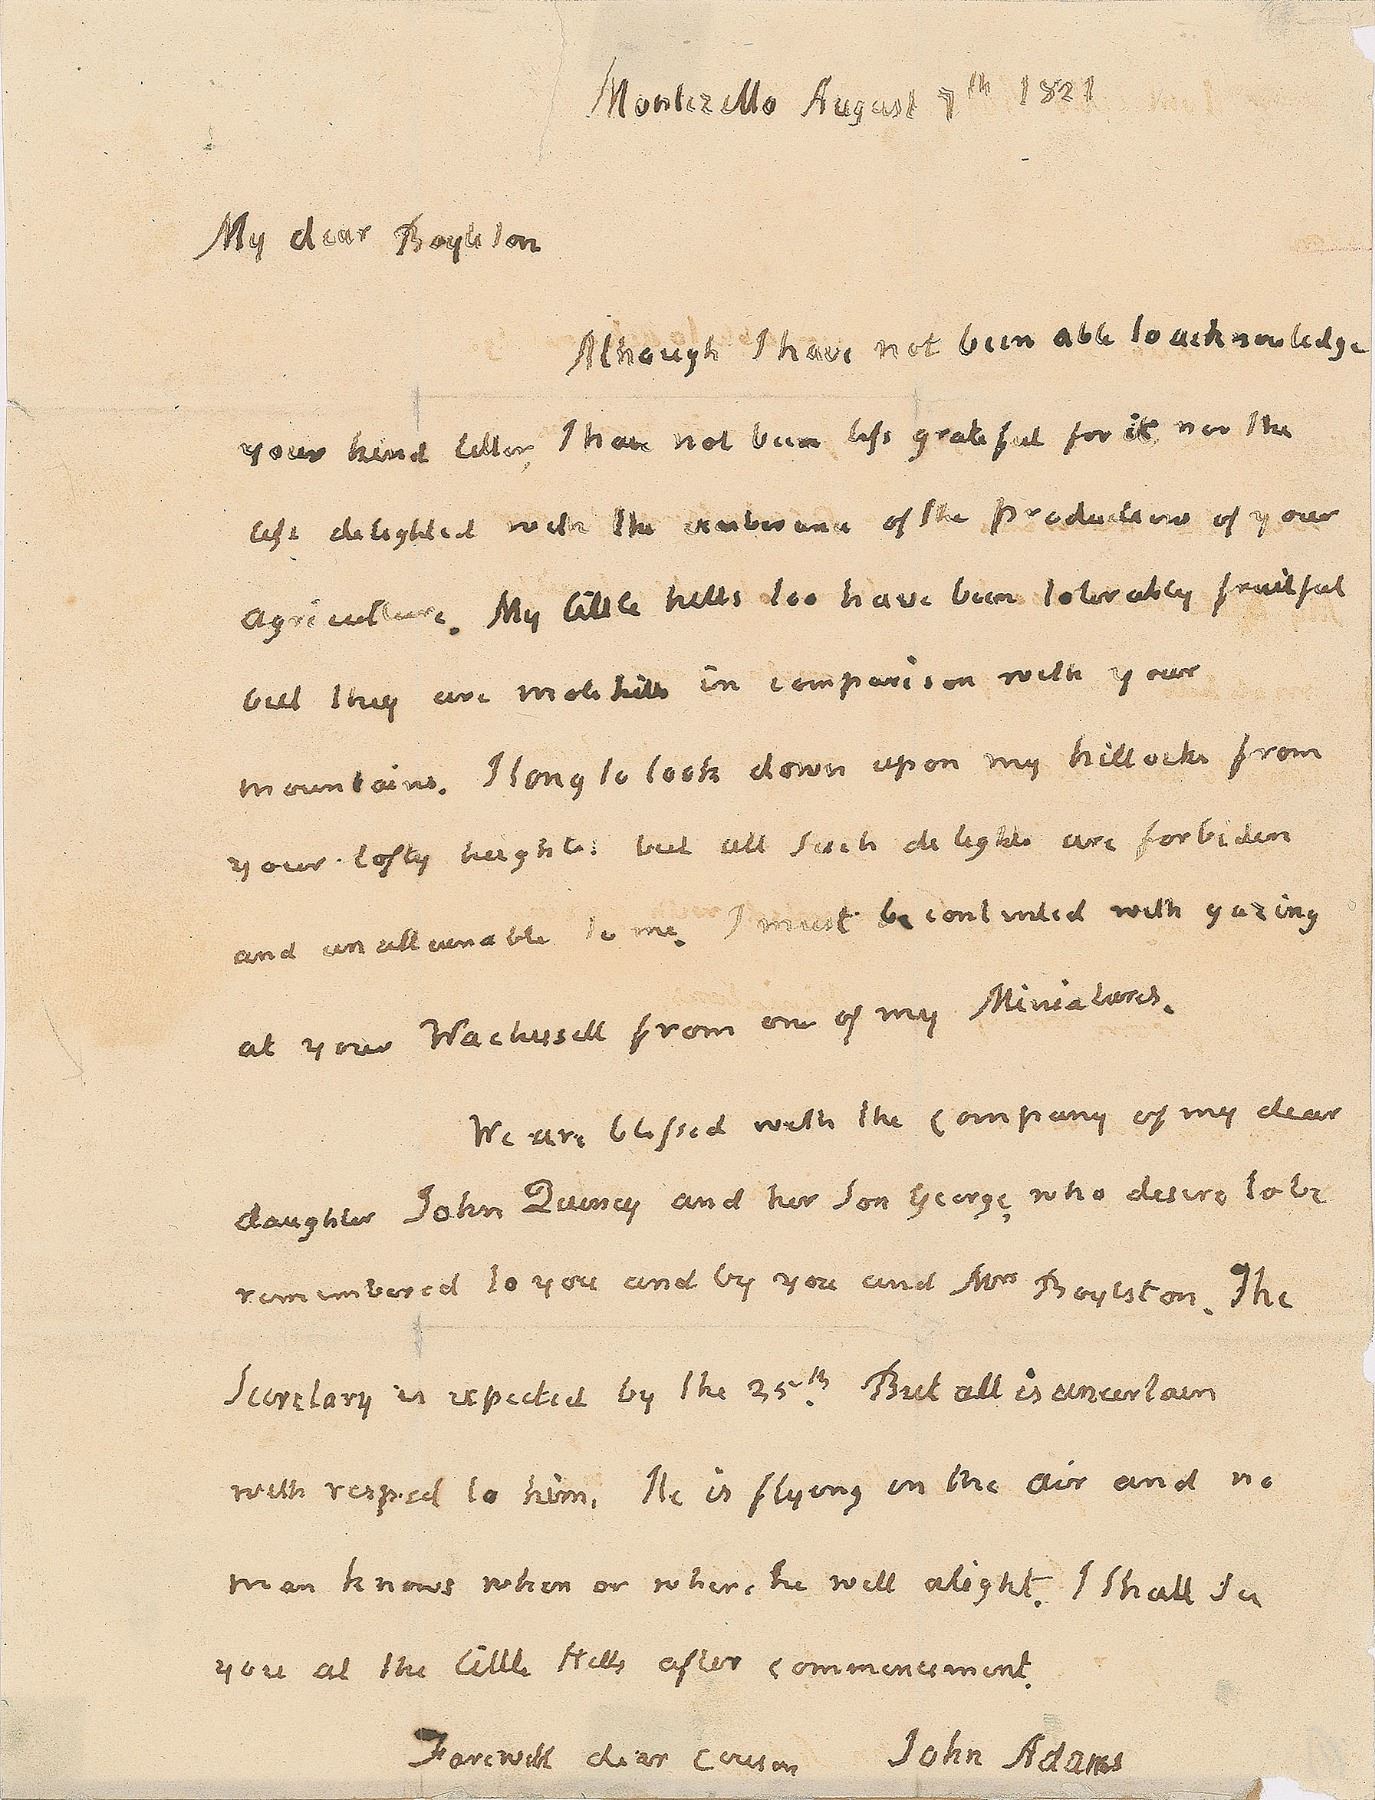 Montezillo August 7th 1821
My dear Boylston
Although I have not been able to acknowledge
your kind letter, I have not been less grateful for it, nor the
less delighted with the exuberance of the productions of your
agriculture. My little hills too have been tolerably fruitful
but they are molehills in comparison with your
mountains. I long to look down upon my hillocks from
your lofty heights: but all such delights are forbiden
and unattainable to me. I must be contented with gazing
at your Wachusett from one of my Miniatures.
We are blessed with the company of my dear
daughter John Quincy and her Son George, who desire to be
remembered to you and by you and Mrs Boylston. The
Secretary is expected by the 25th. But all is uncertain
with respect to him. He is flying in the air and no
man knows when or where he will alight. I shall see
you at the little Hills after commencement.
Farewell dear Cousin John Adams